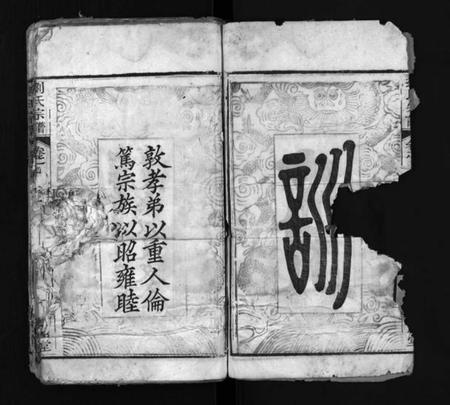 訓
敦孝弟以重人倫
篤宗族以昭雍睦
劉氏宗譜
卷一
堂